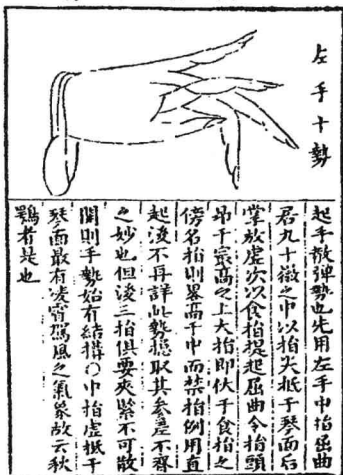 左手十勢
起手散彈勢也先用左手中指屈曲
君九十徽之中以指尖抵于琴面后
掌放虛次以食指提起屈曲令指頭
昂于最高之上大指即伏于食指之
傍名指則畧高于中而禁指例用直
起後不再詳此勢總取其參差不齊
之妙也但後三指俱要夾緊不可散
開則手勢始有結搆○中指虛抵于
琴面最有凌霄駕風之氣象故云秋
鶚者是也